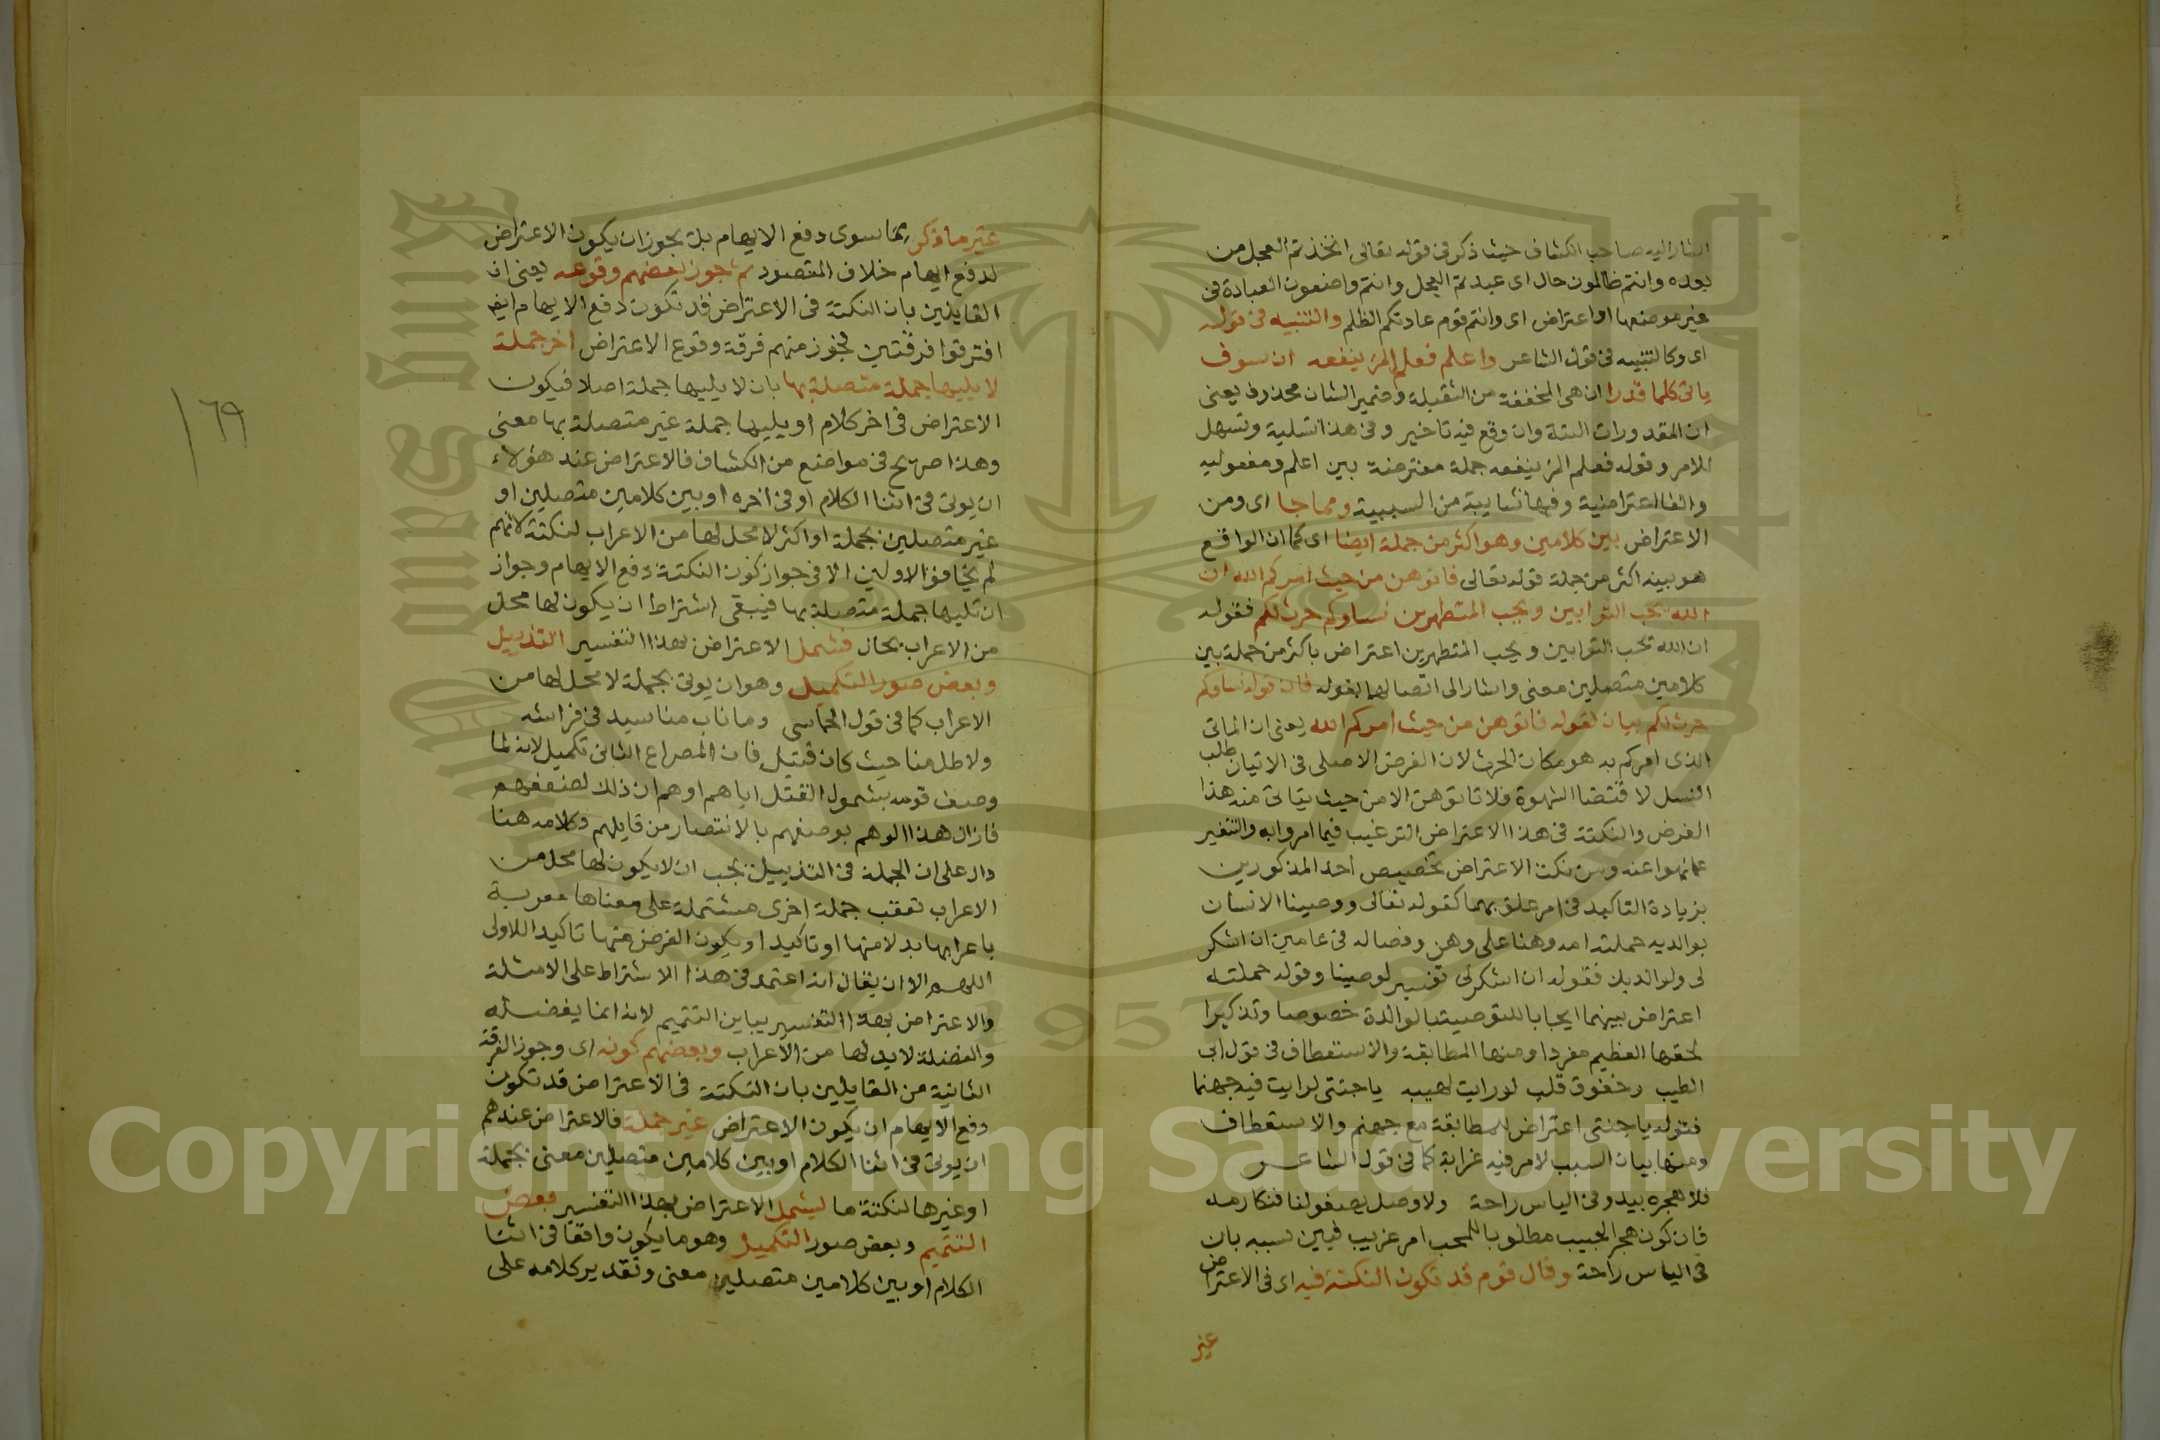 اشار اليه صاحب الكشاف حيث ذكر فى قوله تعالى اتخذتم العجل من
بعده وانتم ظالمون حال اى عبدتم العجل وانتم واضعون العبادة فى
غير موضعها او اعتراض اى وانتم قوم عادتكم الظلم والتنبيه فى قوله
اى وكالتنبيه فى قول الشاعر واعلم فعلم المرء ينفعه ان سوف
ياتى كلما قدرا ان هى المخففة من الثقيلة وضمير الشان محذوف يعنى
ان المقدورات البتة وان وقع فيه تاخير وفى هذا تسلية وتسهل
للامر وقوله فعلم المرء ينفعه جملة معترضة بين اعلم ومفعوليه
والفا اعتراضية وفيها شايبة من السببية ومما جا اى ومن
الاعتراض بين كلامين وهو اكثر من جملة ايضا اى كما ان الواقع
هو بينه اكثر من جملة قوله تعالى فاتوهن من حيث امركم الله ان
الله يحب التوابين ويحب المتطهرين نساوكم حرث لكم فقوله
ان الله يحب التوابين ويحب المتطهرين اعتراض باكثر من جملة بين
كلامين متصلين معنى واشار الى اتصالهما بقوله فان قوله نساوكم
حرث لكم بيان لقوله فاتوهن من حيث امركم الله يعنى ان الماتى
الذى امركم به هو مكان الحرث لان الغرض الاصلى فى الاتيان طلب
النسل لا قضا الشهوة فلا تاتوهن الا من حيث يتاتى منه هذا
الغرض والنكتة فى هذا الاعتراض الترغيب فيما امروا به والتنفير
عما نهوا عنه ومن نكت الاعتراض تخصيص احد المذكورين
بزيادة التاكيد فى امر علق بهما كقوله تعالى ووصينا الانسان
بوالديه حملته امه وهنا على وهن وفصاله فى عامين ان اشكر
لى ولوالديك فقوله ان اشكر لى تفسير لوصينا وقوله حملته
اعتراض بينهما ايجابا للتوصية بالوالدة خصوصا وتذكيرا
لحقها العظيم مفردا ومنها المطابقة والاستعطاف فى قول ابى
الطيب وخفوق قلب لو رايت لهيبه يا جنتى لرايت فيه جهنما
فقوله يا جنتى اعتراض للمطابقة مع جهنم والاستعطاف
ومنها بيان السبب لامر فيه غرابة كما فى قول الشاعر
فلا هجره يبدو وفى الياس راحة ولا وصل يصفو لنا فنكارمه
فان كون هجر الحبيب مطلوبا للمحب امر غريب فبين سببه بان
فى الياس راحة وقال قوم قد تكون النكتة فيه اى فى الاعتراض
غير
غير ما ذكر مما سوى دفع الايهام بل يجوز ان يكون الاعتراض
لدفع ايهام خلاف المقصود ثم جوز بعضهم وقوعه يعنى ان
القايلين بان النكتة فى الاعتراض قد تكون دفع الايهام ايضا
افترقوا فرقتين فجوز منهم فرقة وقوع الاعتراض اخر جملة
لا يليها جملة متصلة بها بان لا يليها جملة اصلا فيكون
الاعتراض فى اخر كلام او يليها جملة غير متصلة بها معنى
وهذا صريح فى مواضع من الكشاف فالاعتراض عند هؤلاء
ان يوتى فى اثنا الكلام او فى اخره او بين كلامين متصلين او
غير متصلين بجملة او اكثر لا محل لها من الاعراب لنكتة لانهم
لم يخالفوا الاولين الا فى جواز كون النكتة دفع الايهام وجواز
ان تليها جملة متصلة بها فيبقى اشتراط ان يكون لها محل
من الاعراب بحال فشمل الاعتراض بهذا التفسير التذييل
وبعض صور التكميل وهو ان يوتى بجملة لا محل لها من
الاعراب كما فى قول الحماسى وما مات منا سيد فى فراشه
ولا طل منا حيث كان قتيل فان المصراع الثانى تكميل لانه لما
وصف قومه بشمول القتل اياهم اوهم ان ذلك لضعفهم
فازال هذا الوهم بوصفهم بالانتصار من قاتلهم وكلامه هنا
دال على ان الجملة فى التذييل يجب ان لا يكون لها محل من
الاعراب تعقب جملة اخرى مشتملة على معناها معربة
باعرابها بدلا منها او تاكيدا او يكون الغرض منها تاكيد الاولى
اللهم الا ان يقال انه اعتمد فى هذا الاشتراط على الامثلة
والاعتراض بهذا التفسير يباين التتميم لانه انما يفضله
والفضلة لا بد لها من الاعراب وبعضهم كونه اى وجوز الفرقة
الثانية من القايلين بان النكتة فى الاعتراض قد تكون
دفع الايهام ان يكون الاعتراض غير جملة فالاعتراض عندهم
ان يوتى فى اثنا الكلام او بين كلامين متصلين معنى بجملة
او غيرها لنكتة ما ليشمل الاعتراض بهذا التفسير بعض
التتميم وبعض صور التكميل وهو ما يكون واقعا فى اثنا
الكلام او بين كلامين متصلين معنى وتقدير كلامه على
١٦٩
King Saud University
1957
Copyright © King Saud University